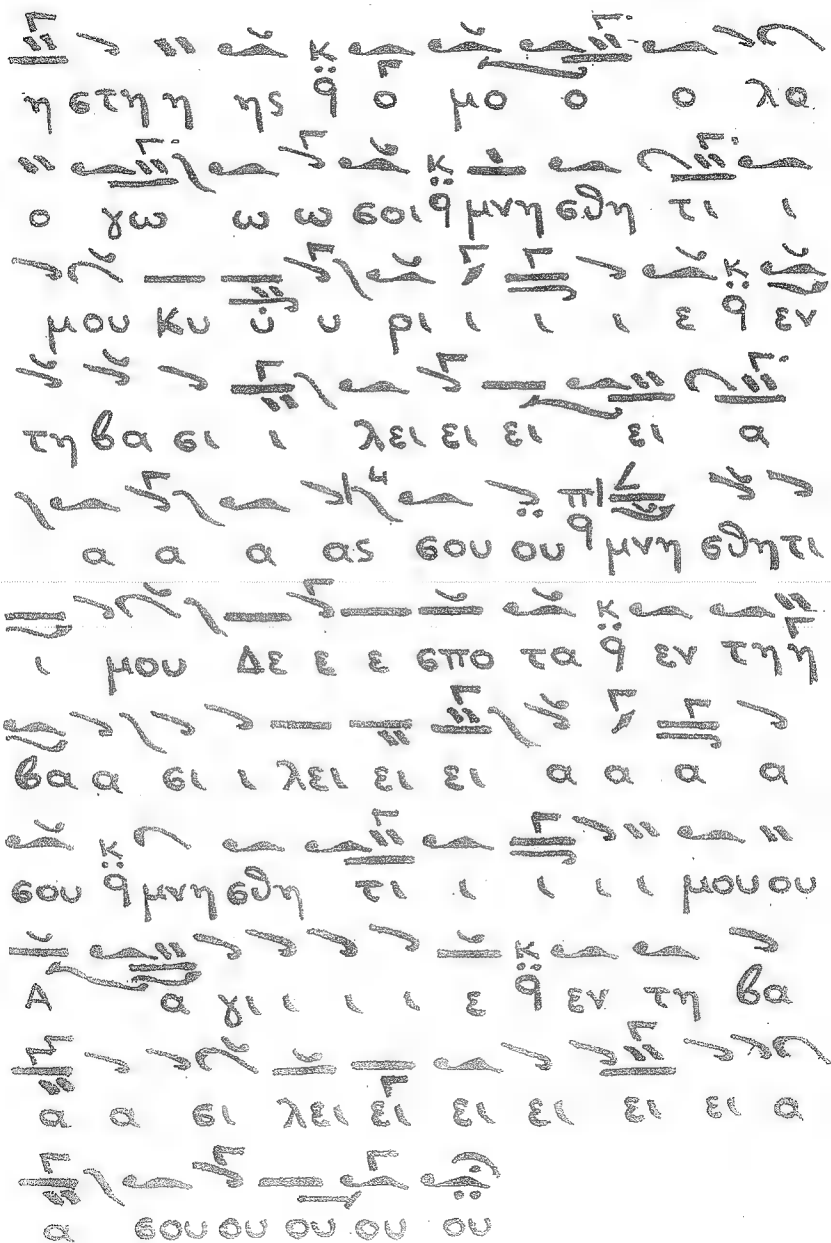 η στη η ης ο μο ο ο λα
ο γω ω ω σοι μνη σθη τι ι
μου Κυ ύ υ ρι ι ι ι ε εν
τη βα σι ι λει ει ει ει α
α α α ας σου ου μνη σθη τι
ι μου Δε ε ε σπο τα εν τη η
βα α σι ι λει ει ει α α α α
σου μνη σθη τι ι ι ι ι μου ου
Α α γι ι ι ι ε εν τη βα
α α σι λει ει ει ει ει ει α
α σου ου ου ου ου